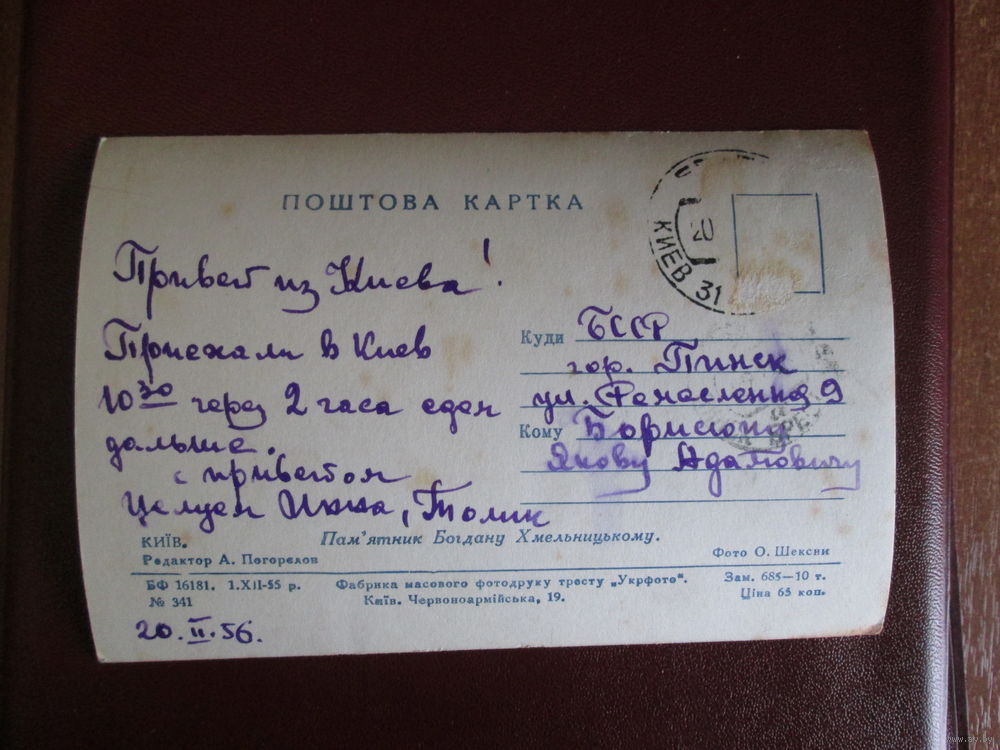 ПОШТОВА КАРТКА
КИЕВ 31
20
Привет из Киева!
Приехали в Киев
10 30 через 2 часа едем
дальше.
с приветом
Целуем Инна, Толик
Куди БССР
гор. Пинск
ул. Ремесленная 9
Кому Борисюку
Якову Адамовичу
КИЇВ. Пам'ятник Богдану Хмельницькому.
Редактор А. Погорєлов
Фото О. Шексни
БФ 16181. 1.XII-55 р. Фабрика масового фотодруку тресту „Укрфото". Зам. 685—10 т.
№ 341 Київ. Червоноармійська, 19. Ціна 65 коп.
20.II.56.